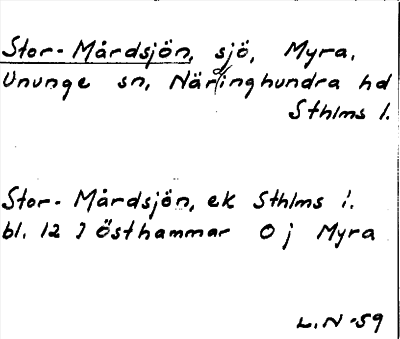 Stor-Mårdsjön, sjö, Myra,
Ununge sn, Närdinghundra hd
Sthlms l.
Stor-Mårdsjön, ek Sthlms l.
bl. 12 J Östhammar O j Myra
L.N-59